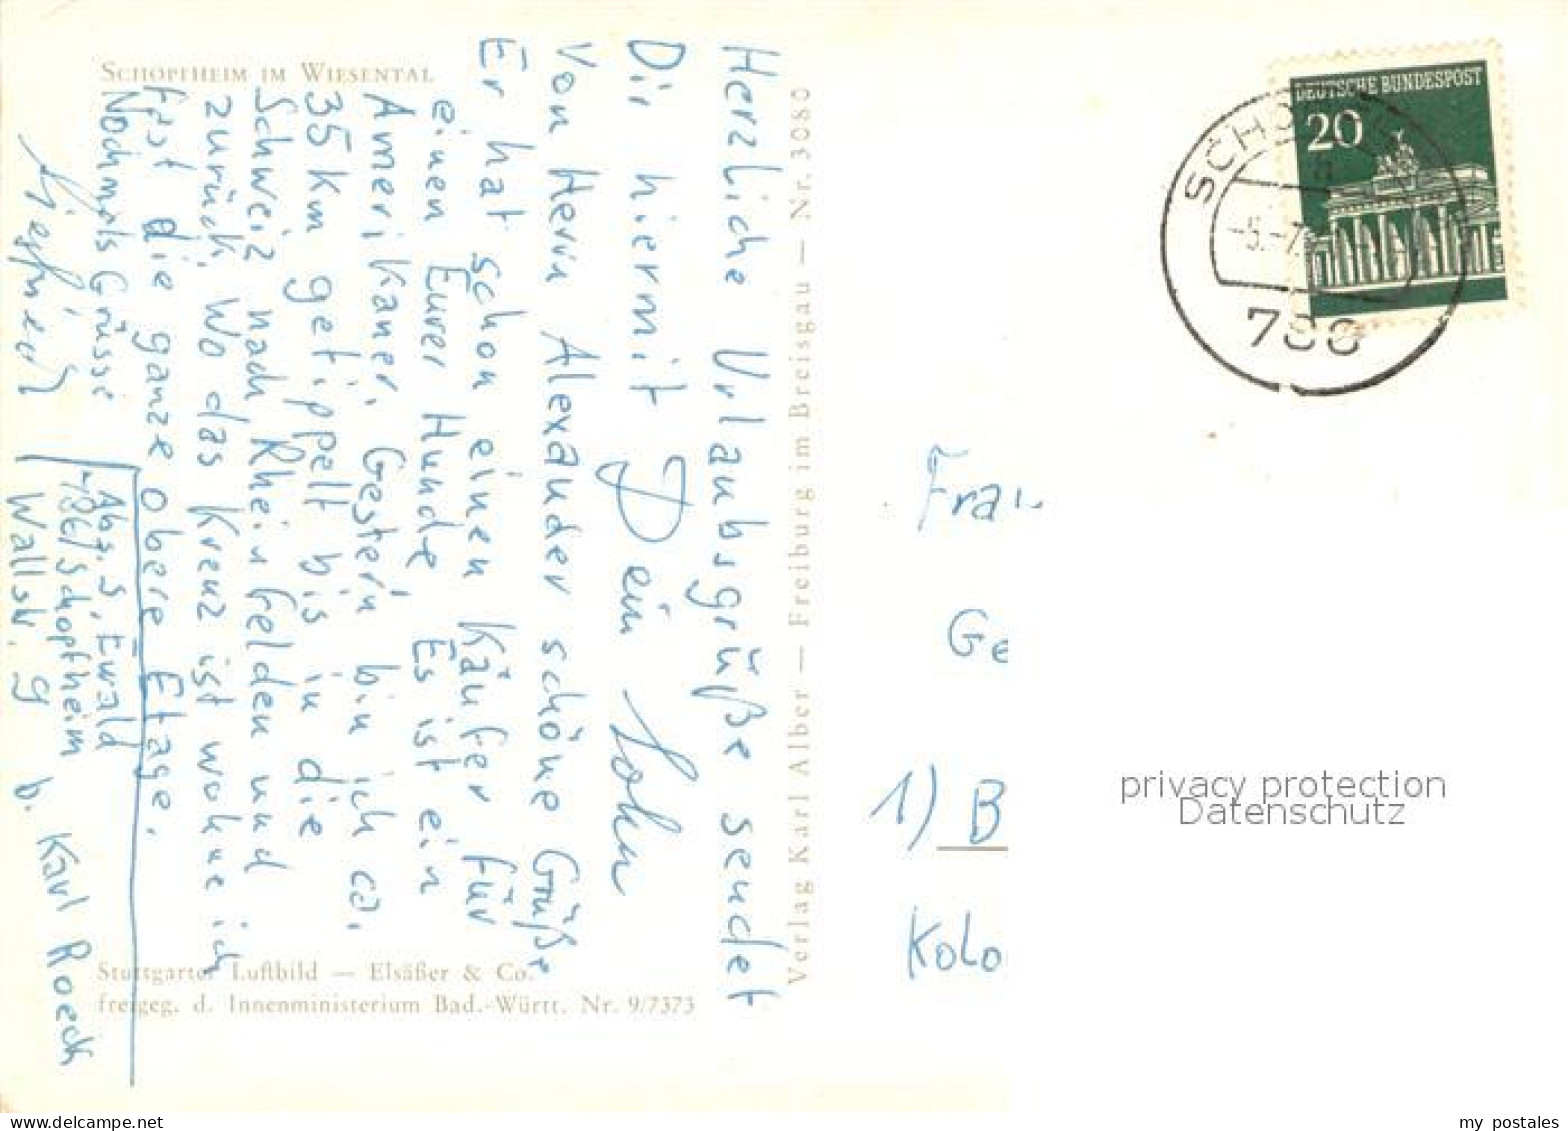 SCHOPFHEIM IM WIESENTAL
Herzliche Urlaubsgrüße sendet
Dir hiermit Dein Sohn
Von Herrn Alexander schöne Grüße
Er hat schon einen Käufer für
einen Eurer Hunde, Es ist ein
Amerikaner. Gestern bin ich ca.
35 km getippelt bis in die
Schweiz nach Rheinfelden und
zurück. Wo das Kreuz ist wohne ich
fast die ganze obere Etage.
Nochmals Grüsse
Siegfried
Abs. S. Ewald
786 Schopfheim
Wallstr. 9 b. Karl Roeck
Stuttgarter Luftbild — Elsäßer & Co.
freigeg. d. Innenministerium Bad.-Württ. Nr. 9/7373
Verlag Karl Alber — Freiburg im Breisgau — Nr. 3080
DEUTSCHE BUNDESPOST
20
SCHO
-5.-7.
Frau
Ge
1) B
Kolo
privacy protection
Datenschutz
www.delcampe.net
my postales